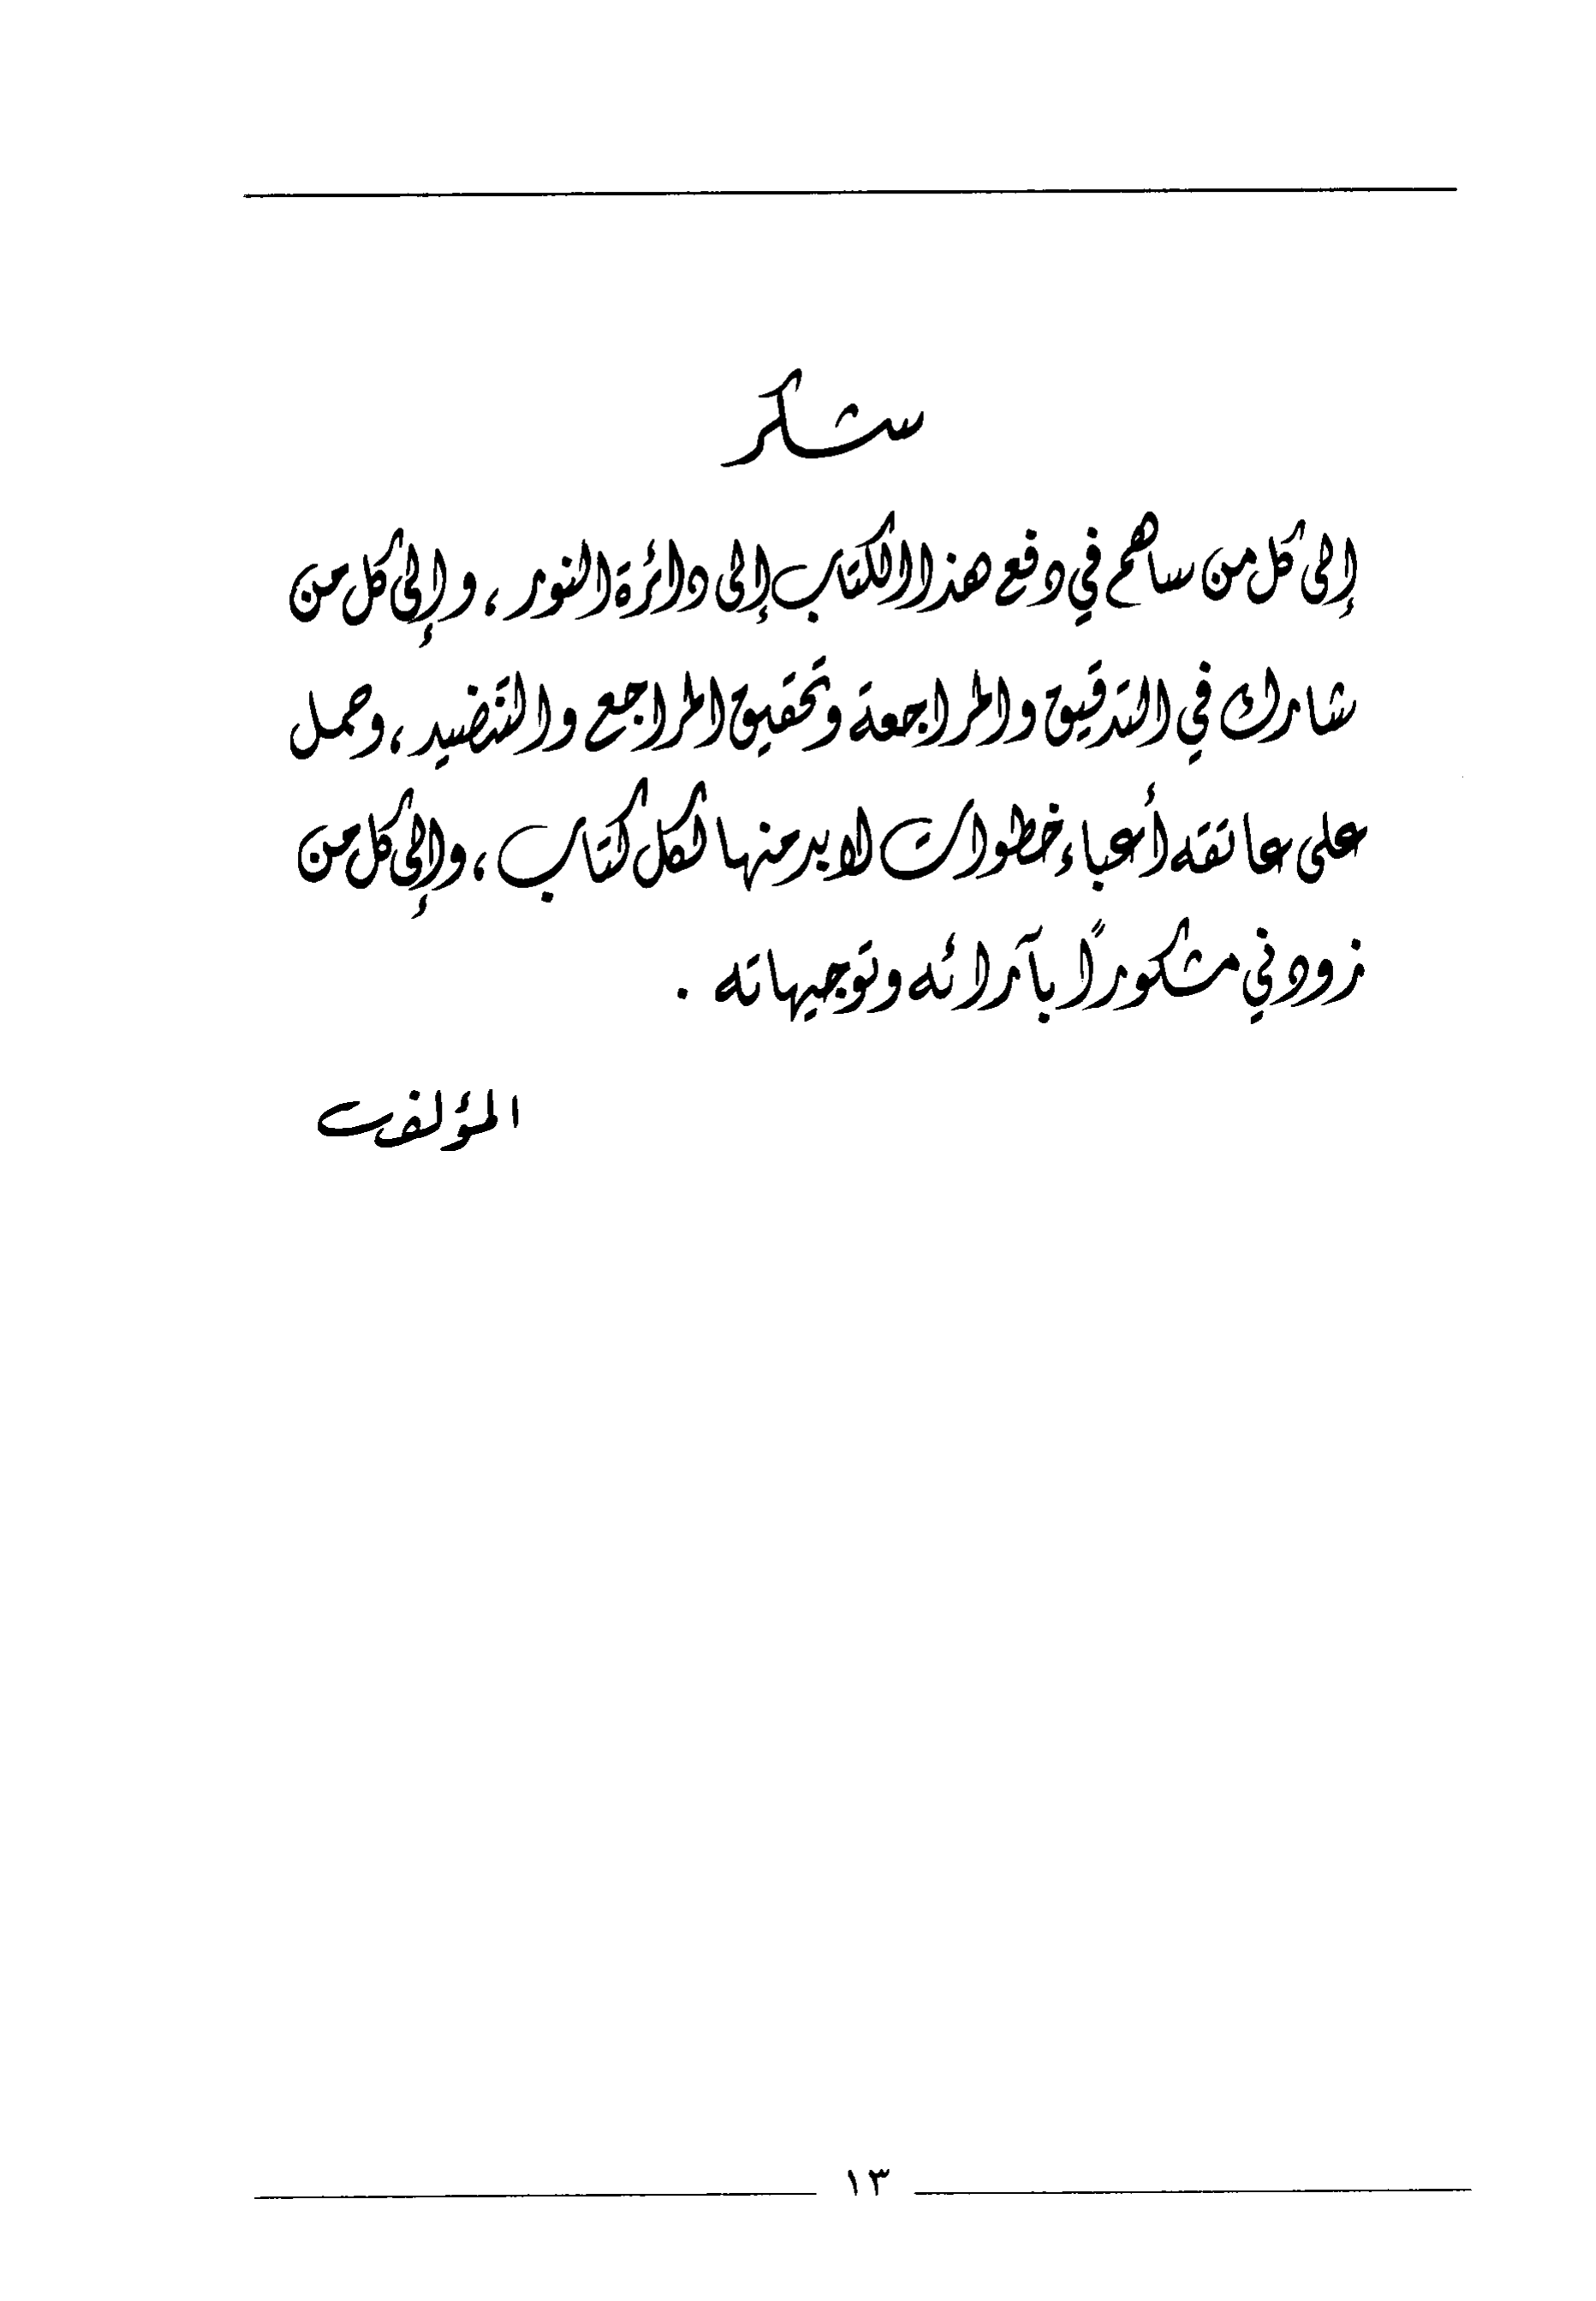 شكر
إلى كل من ساهم في دفع هذا الكتاب إلى دائرة النور ، وإلى كل من
شارك في التدقيق والمراجعة وتحقيق المراجع والتنضيد ، وحمل
على عاتقه أعباء خطوات لابد منها لكل كتاب ، وإلى كل من
زودني مشكورًا بآرائه وتوجيهاته .
المؤلف
١٣